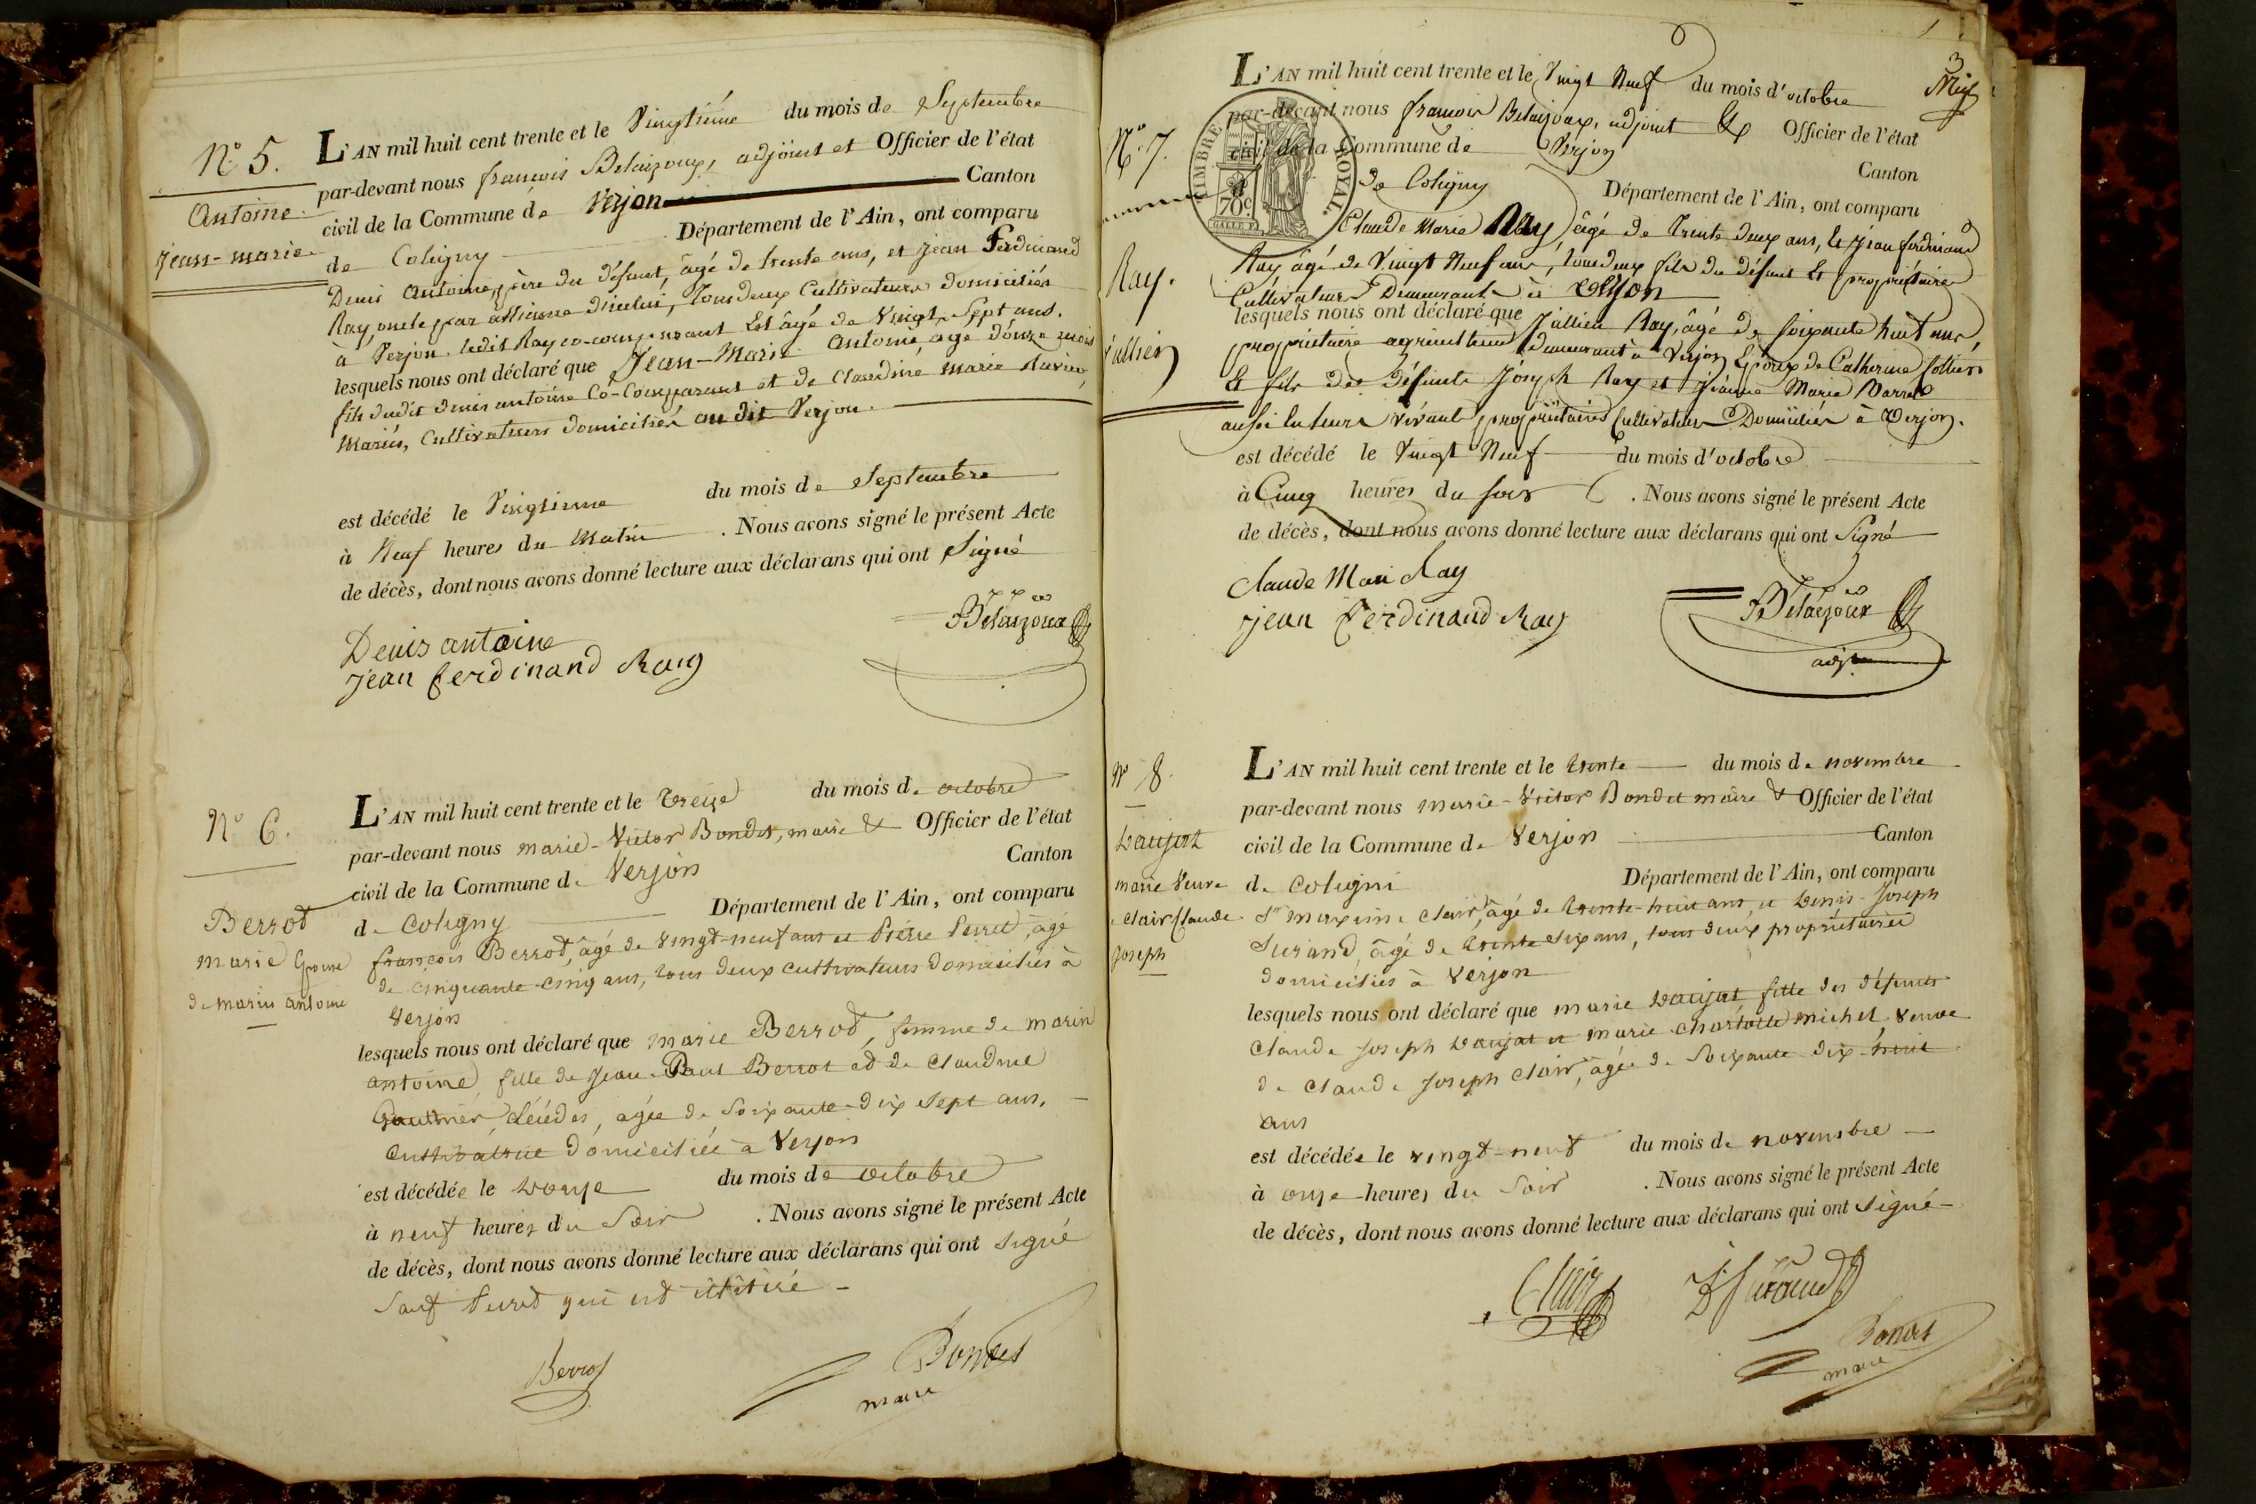 N.° 5.
Antoine
jean-marie
L'AN mil huit cent trente et le Vingtième du mois de Septembre
par-devant nous francois Bélaizoux, adjoint et Officier de l'état
civil de la Commune de Verjon Canton
de Coligny Département de l'Ain, ont comparu
Denis Antoine, père du défunt, âgé de trente ans, et jean Ferdinand
Ray oncle par alliance d'icelui, tous deux Cultivateurs domiciliés
à Verjon. ledit Ray co-comparant Est âgé de Vingt-Sept ans.
lesquels nous ont déclaré que Jean-Marie Antoine, âgé d'onze mois
fils dudit denis antoine Co-Comparant et de Claudine Marie
Mariés, Cultivateurs domiciliés au dit Verjon.
est décédé le Vingtieme du mois de Septembre
à Neuf heures du Matin . Nous avons signé le présent Acte
de décès, dont nous avons donné lecture aux déclarans qui ont Signé
Bélaizoux
Denis antoine
jean ferdinand Ray
N° 6.
Berrod
marie femme
de marin antoine
L'AN mil huit cent trente et le treize du mois de octobre
par-devant nous marie-Victor Bondet, maire & Officier de l'état
civil de la Commune de Verjon Canton
de Coligny Département de l'Ain, ont comparu
françois Berrod, âgé de vingt-neuf ans et Pierre Perret, âgé
de cinquante-cinq ans, tous deux cultivateurs domiciliés à
Verjon
lesquels nous ont déclaré que marie Berrod, femme de marin
antoine, fille de Jean-Paul Berrod et de Claudine
Gauthier, décédés, agée de Soixante-dix Sept ans,
Cultivatrice domiciliée à Verjon
est décédée le douze du mois de octobre
à neuf heures du Soir . Nous avons signé le présent Acte
de décès, dont nous avons donné lecture aux déclarans qui ont signé
Sauf Perret qui est illitéré
Berrod
Bondet
maire
3
N.° 7.
Ray.
Jullien
L'AN mil huit cent trente et le Vingt Neuf du mois d'octobre
par-devant nous francois Belaizoux, adjoint & Officier de l'état
civil de la Commune de Verjon Canton
de Coligny Département de l'Ain, ont comparu
TIMBRE ROYAL.
70c
Claude Marie Ray âgé de Trente deux ans, & Jean ferdinand
Ray âgé de Vingt Neuf ans, tous deux fils du défunt & propriétaires
Cultivateurs Demeurants à Verjon
lesquels nous ont déclaré que Jullien Ray, âgé de soixante huit ans,
propriétaire agriculteur demeurant à Verjon Epoux de Catherine
& fils des défunts Joseph Ray et Jeanne Marie
aussi lui leurs vivants propriétaires Cultivateurs Domiciliés à Verjon.
est décédé le Vingt Neuf du mois d'octobre
à Cinq heures du soir . Nous avons signé le présent Acte
de décès, dont nous avons donné lecture aux déclarans qui ont Signé
Claude Mari Ray
jean ferdinand Ray
Bélaizoux
adjt
N° 8.
Daujat
marie veuve
Clair Claude
joseph
L'AN mil huit cent trente et le trente du mois de novembre
par-devant nous marie-Victor Bondet maire & Officier de l'état
civil de la Commune de Verjon Canton
de Coligni Département de l'Ain, ont comparu
Sr maxime Clair, âgé de trente-huit ans, et Denis-Joseph
Surand, âgé de trente six ans, tous deux propriétaires
domiciliés à Verjon
lesquels nous ont déclaré que marie Daujat, fille des défunts
claude joseph Daujat et marie-charlotte michel veuve
de claude joseph Clair, âgée de Soixante-dix-huit
ans
est décédée le vingt-neuf du mois de novembre
à onze heures du Soir . Nous avons signé le présent Acte
de décès, dont nous avons donné lecture aux déclarans qui ont signé
Clair
Bondet
maire